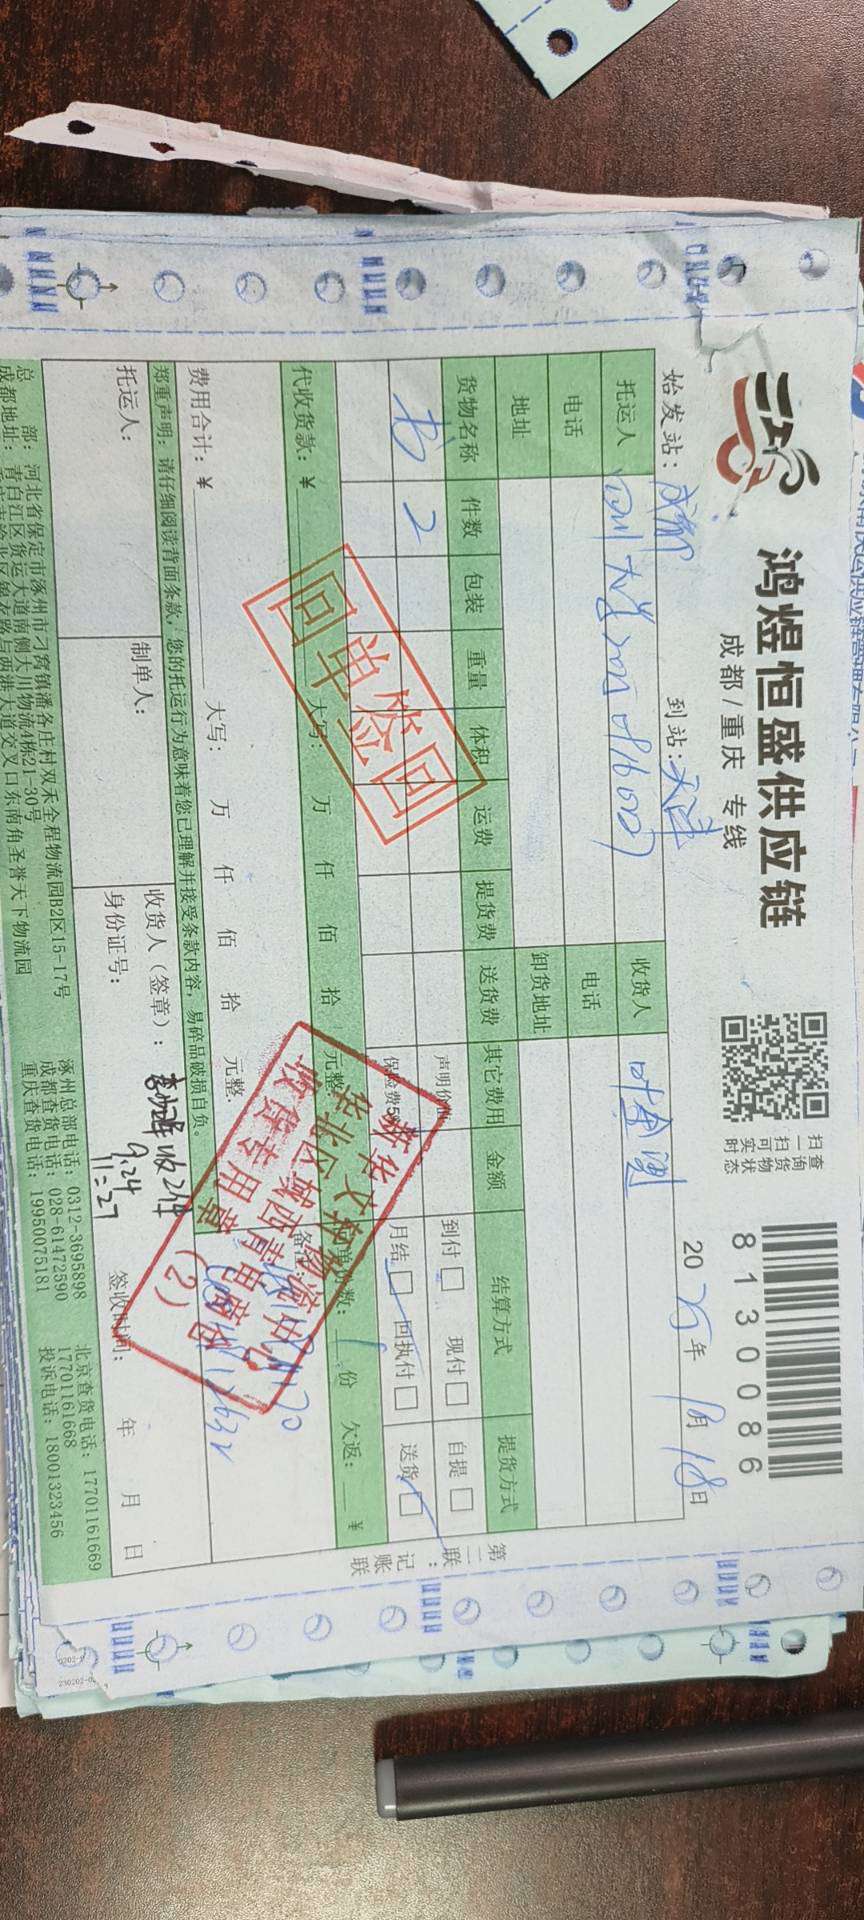 鸿煜恒盛供应链
成都/重庆 专线
扫一扫可实时
查询货物状态
8130086
始发站：成都 到站：天津 2025年9月18日
托运人 四川大学 收货人
电话 电话
地址 卸货地址
货物名称 件数 包装 重量 体积 运费 提货费 送货费 其它费用 金额 结算方式 提货方式
书 2
声明价值 到付 现付 自提
保险费 月结 回执付 送货
回单签回
代收货款：￥ 大写： 万 仟 佰 拾 元整. 1份 欠返： ￥
费用合计：￥ 大写： 万 仟 佰 拾 元整. 备注
收货专用章
(2)
郑重声明：请仔细阅读背面条款，您的托运行为意味着您已理解并接受条款内容，易碎品破损自负。
托运人： 制单人： 收货人（签章）： 收2件
身份证号： 9.24
11:27
签收时间： 年 月 日
第二联：记账联
总 部：河北省保定市涿州市刁窝镇潘各庄村双禾全程物流园B2区15-17号 涿州总部电话：0312-3695898 北京查货电话：17701161669
成都地址：青白江区货运大道南侧大川物流4栋21-30号 成都查货电话：028-61472590 17701161668
重庆查货电话：19950075181 投诉电话：18001323456